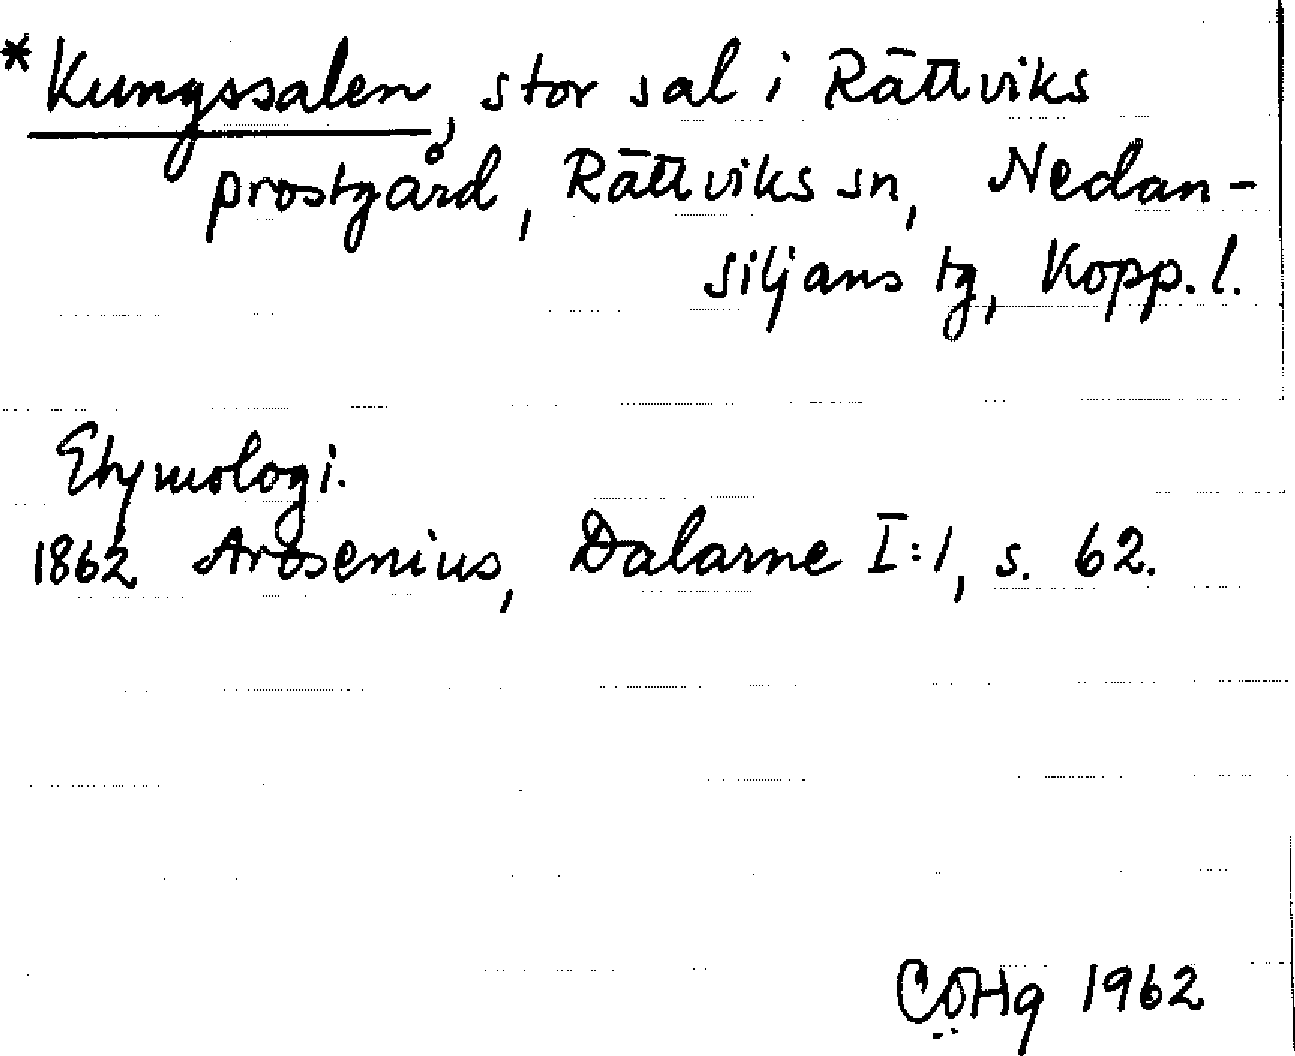 *Kungssalen, stor sal i Rättviks
prostgård, Rättviks sn, Nedan-
siljans tg, Kopp. l.
Etymologi.
1862 Arosenius, Dalarne I:1, s. 62.
CÖHg 1962